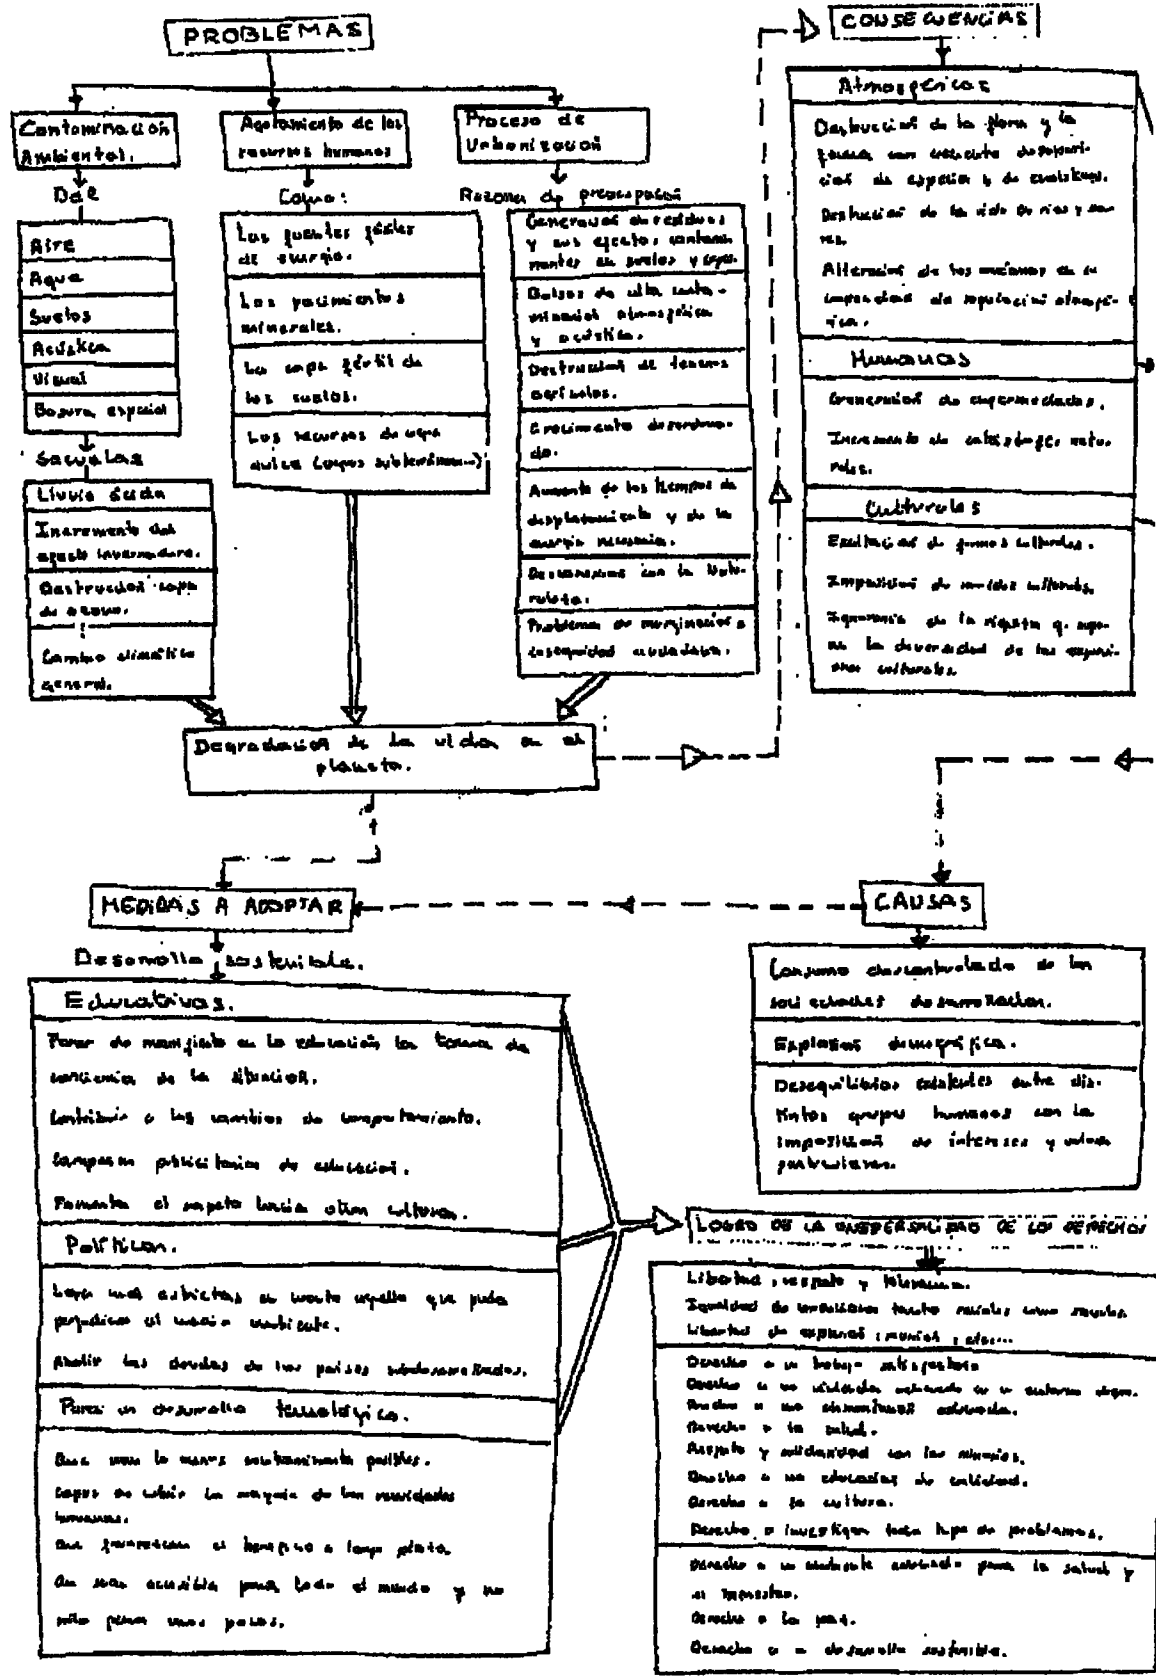 PROBLEMAS
Contaminación
Ambiental.
Del
Aire
Agua
Suelos
Acústica
Visual
Basura especial
Secuelas
Lluvia ácida
Incremento del
efecto invernadero.
Destrucción capa
de ozono.
Cambio climático
general.
Agotamiento de los
recursos humanos
Como:
Las fuentes fósiles
de energía.
Los yacimientos
minerales.
La capa fértil de
los suelos.
Los recursos de agua
dulce (aguas subterráneas...)
Proceso de
Urbanización
Razones de preocupación
Generación de residuos
y sus efectos contami-
nantes en suelos y aguas.
Bolsas de alta conta-
minación atmosférica
y acústica.
Destrucción de terrenos
agrícolas.
Crecimiento desordena-
do.
Aumento de los tiempos de
desplazamiento y de la
energía necesaria.
Desconexión con la Natu-
raleza.
Problemas de marginación e
inseguridad ciudadana.
Degradación de la vida en el
planeta.
CONSECUENCIAS
Atmosféricas
Destrucción de la flora y la
fauna con creciente desapari-
ción de especies y de ecosistemas.
Destrucción de la vida en ríos y ma-
res.
Alteración de los océanos en su
capacidad de regulación atmosfé-
rica.
Humanas
Generación de enfermedades.
Incremento de catástrofes natu-
rales.
Culturales
Extinción de formas culturales.
Imposición de modelos culturales.
Ignorancia de la riqueza q. supo-
ne la diversidad de las expresio-
nes culturales.
MEDIDAS A ADOPTAR
Desarrollo sostenible.
Educativas.
Poner de manifiesto en la educación la toma de
conciencia de la situación.
Contribuir a los cambios de comportamiento.
Campañas publicitarias de educación.
Fomentar el respeto hacia otras culturas.
Políticas.
Leyes más estrictas en cuanto aquello que pueda
perjudicar el medio ambiente.
Abolir las deudas de los países subdesarrollados.
Para un desarrollo tecnológico.
Que sean lo menos contaminante posibles.
Capaz de cubrir la mayoría de las necesidades
humanas.
Que garanticen el beneficio a largo plazo.
Que sean accesible para todo el mundo y no
sólo para unos pocos.
CAUSAS
Consumo descontrolado de las
sociedades desarrolladas.
Explosión demográfica.
Desequilibrios existentes entre dis-
tintos grupos humanos con la
imposición de intereses y valores
particulares.
LOGRO DE LA UNIVERSALIDAD DE LOS DERECHOS
Libertad, respeto y tolerancia.
Igualdad de condiciones tanto raciales como sexuales.
Libertad de expresión, reunión, etc...
Derecho a un trabajo satisfactorio
Derecho a una vivienda adecuada en un entorno digno.
Derecho a una alimentación adecuada.
Derecho a la salud.
Respeto y solidaridad con las minorías.
Derecho a una educación de calidad.
Derecho a la cultura.
Derecho a investigar todo tipo de problemas.
Derecho a un ambiente adecuado para la salud y
el bienestar.
Derecho a la paz.
Derecho a un desarrollo sostenible.